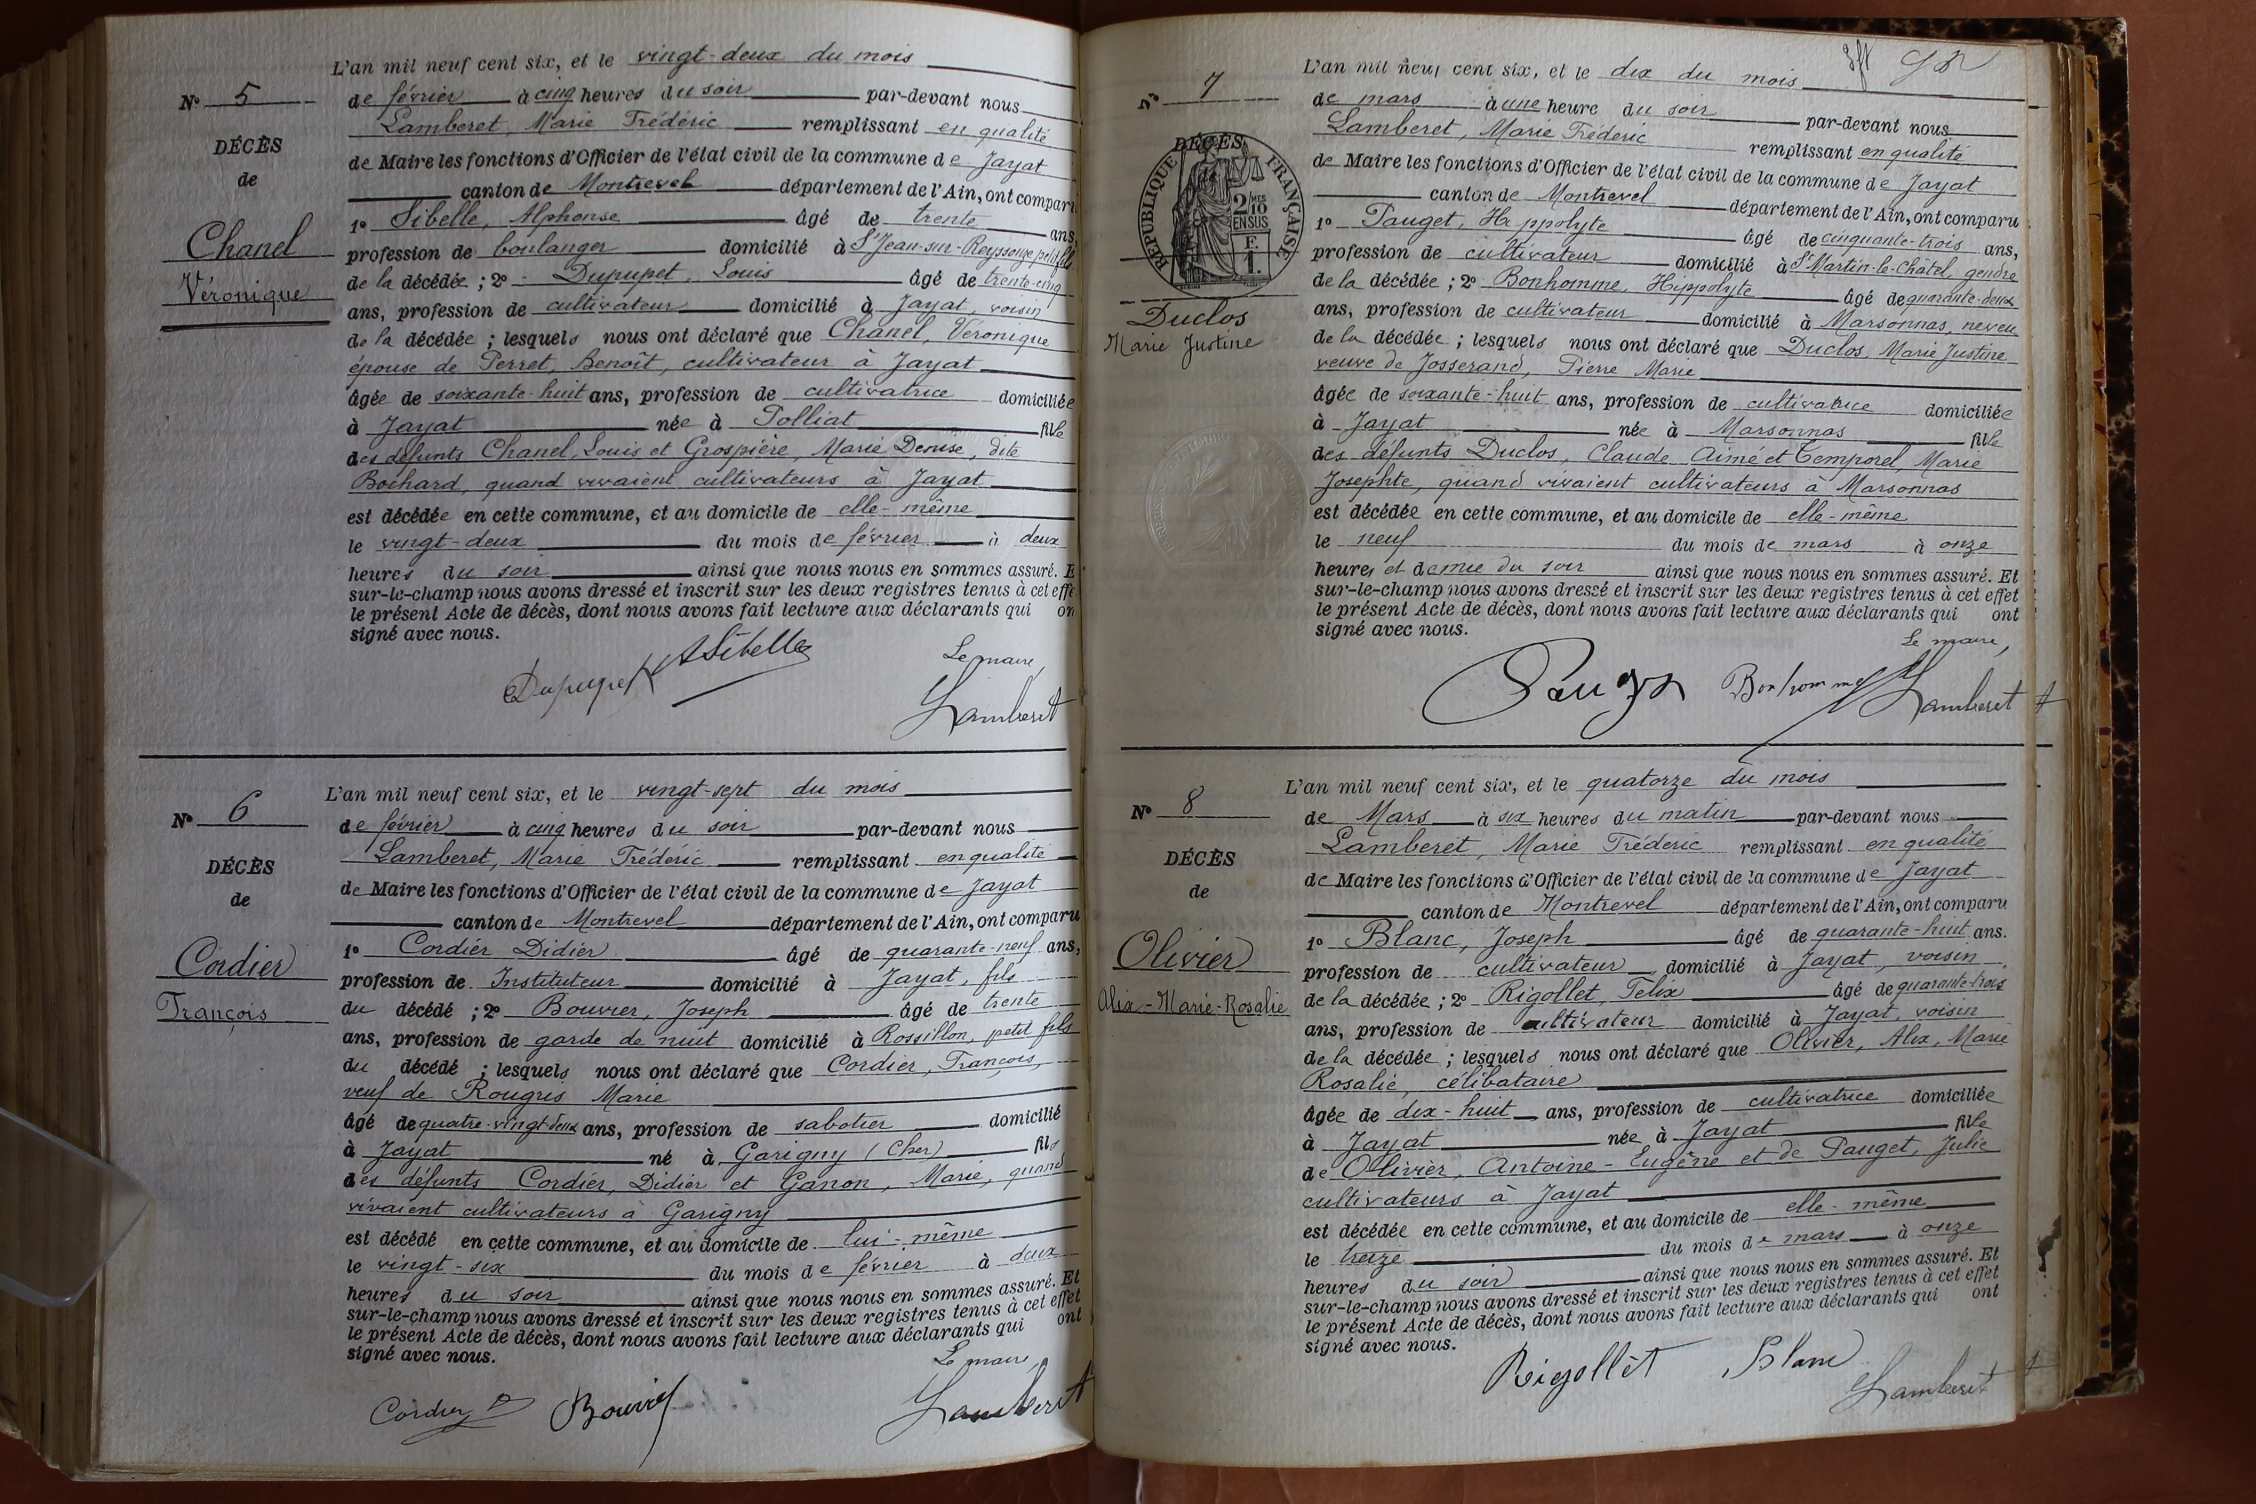 L'an mil neuf cent six, et le vingt-deux du mois
N° 5
de février à cinq heures du soir par-devant nous
Lamberet, Marie Frédéric remplissant en qualité
DÉCÈS
de Maire les fonctions d'Officier de l'état civil de la commune de Jayat
de
canton de Montrevel département de l'Ain, ont comparu
1° Sibelle, Alphonse âgé de trente ans,
Chanel
profession de boulanger domicilié à St Jean-sur-Reyssouze, petit fils
de la décédée ; 2° Dupupet, Louis âgé de trente-cinq
Véronique
ans, profession de cultivateur domicilié à Jayat, voisin
de la décédée ; lesquels nous ont déclaré que Chanel, Véronique
épouse de Perret, Benoît, cultivateur à Jayat
âgée de soixante-huit ans, profession de cultivatrice domiciliée
à Jayat née à Polliat fille
des défunts Chanel, Louis et Grospière, Marie Denise, dite
Bochard, quand vivaient cultivateurs à Jayat
est décédée en cette commune, et au domicile de elle-même
le vingt-deux du mois de février à deux
heures du soir ainsi que nous nous en sommes assuré. E
sur-le-champ nous avons dressé et inscrit sur les deux registres tenus à cet effe
le présent Acte de décès, dont nous avons fait lecture aux déclarants qui on
signé avec nous.
Le maire,
Dupupet ASibelle
Lamberet
L'an mil neuf cent six, et le vingt-sept du mois
N° 6
de février à cinq heures du soir par-devant nous
Lamberet, Marie Frédéric remplissant en qualité
DÉCÈS
de Maire les fonctions d'Officier de l'état civil de la commune de Jayat
de
canton de Montrevel département de l'Ain, ont comparu
1° Cordier Didier âgé de quarante-neuf ans,
Cordier
profession de Instituteur domicilié à Jayat, fils
François
du décédé ; 2° Bouvier, Joseph âgé de trente
ans, profession de garde de nuit domicilié à Rossillon, petit fils
du décédé ; lesquels nous ont déclaré que Cordier, François,
veuf de Rougris Marie
âgé de quatre-vingt-deux ans, profession de sabotier domicilié
à Jayat né à Garigny (Cher) fils
des défunts Cordier, Didier et Ganon, Marie, quand
vivaient cultivateurs à Garigny
est décédé en cette commune, et au domicile de lui-même
le vingt-six du mois de février à deux
heures du soir ainsi que nous nous en sommes assuré. Et
sur-le-champ nous avons dressé et inscrit sur les deux registres tenus à cet effet
le présent Acte de décès, dont nous avons fait lecture aux déclarants qui ont
signé avec nous.
Le maire,
Cordier D Bouvier
Lamberet
L'an mil neuf cent six, et le dix du mois
N° 7
de mars à une heure du soir par-devant nous
Lamberet, Marie Frédéric remplissant en qualité
DÉCÈS
RÉPUBLIQUE FRANÇAISE
2/10 MES
EN SUS
F.
1.
de Maire les fonctions d'Officier de l'état civil de la commune de Jayat
canton de Montrevel département de l'Ain, ont comparu
1° Pauget, Hippolyte âgé de cinquante-trois ans,
profession de cultivateur domicilié à St Martin-le-Châtel, gendre
de la décédée ; 2° Bonhomme, Hippolyte âgé de quarante-deux
Duclos
ans, profession de cultivateur domicilié à Marsonnas, neveu
Marie Justine
de la décédée ; lesquels nous ont déclaré que Duclos, Marie Justine
veuve de Josserand, Pierre Marie
âgée de soixante-huit ans, profession de cultivatrice domiciliée
à Jayat née à Marsonnas fille
des défunts Duclos, Claude Aimé et Temporel, Marie
Josephte, quand vivaient cultivateurs à Marsonnas
est décédée en cette commune, et au domicile de elle-même
le neuf du mois de mars à onze
heures et demie du soir ainsi que nous nous en sommes assuré. Et
sur-le-champ nous avons dressé et inscrit sur les deux registres tenus à cet effet
le présent Acte de décès, dont nous avons fait lecture aux déclarants qui ont
signé avec nous.
Le maire,
Pauget Bonhomme Lamberet
L'an mil neuf cent six, et le quatorze du mois
N° 8
de Mars à six heures du matin par-devant nous
Lamberet, Marie Frédéric remplissant en qualité
DÉCÈS
de Maire les fonctions d'Officier de l'état civil de la commune de Jayat
de
canton de Montrevel département de l'Ain, ont comparu
1° Blanc, Joseph âgé de quarante-huit ans.
Olivier
profession de cultivateur domicilié à Jayat, voisin
Alix-Marie-Rosalie
de la décédée ; 2° Rigollet, Félix âgé de quarante-trois
ans, profession de cultivateur domicilié à Jayat, voisin
de la décédée ; lesquels nous ont déclaré que Olivier, Alix, Marie
Rosalie, célibataire
âgée de dix-huit ans, profession de cultivatrice domiciliée
à Jayat née à Jayat fille
de Olivier, Antoine-Eugène et de Pauget, Julie
cultivateurs à Jayat
est décédée en cette commune, et au domicile de elle-même
le treize du mois de mars à onze
heures du soir ainsi que nous nous en sommes assuré. Et
sur-le-champ nous avons dressé et inscrit sur les deux registres tenus à cet effet
le présent Acte de décès, dont nous avons fait lecture aux déclarants qui ont
signé avec nous.
Rigollet Blanc
Lamberet